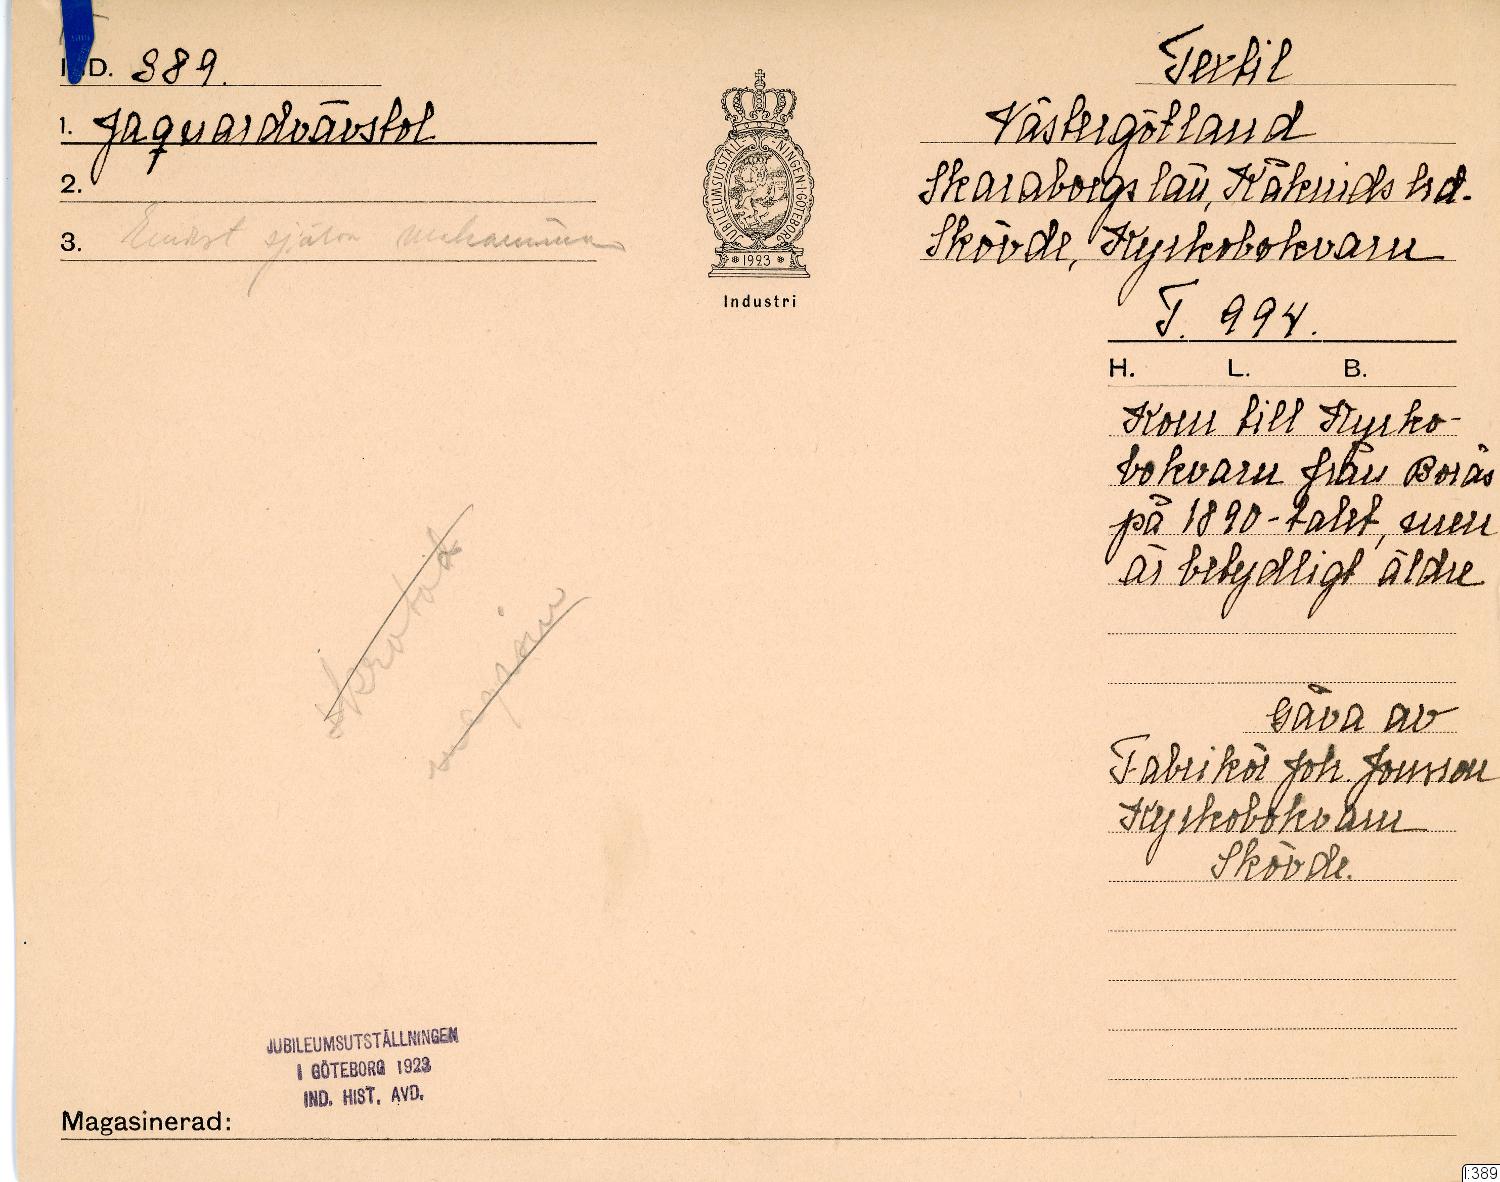 IND. 389.
1. Jaquardvävstol
2.
3. Endast själva mekanismen
JUBILEUMSUTSTÄLLNINGEN I GÖTEBORG
1923
Industri
Textil
Västergötland
Skaraborgs län, Kåkinds hd.
Skövde, Kyrkobokvarn
T. 994.
H. L. B.
Kom till Kyrko-
bokvarn från Borås
på 1890-talet, men
är betydligt äldre
Gåva av
Fabrikör Joh. Jonsson
Kyrkobokvarn
Skövde.
skrotad
JUBILEUMSUTSTÄLLNINGEN
I GÖTEBORG 1923
IND. HIST. AVD.
Magasinerad:
I:389